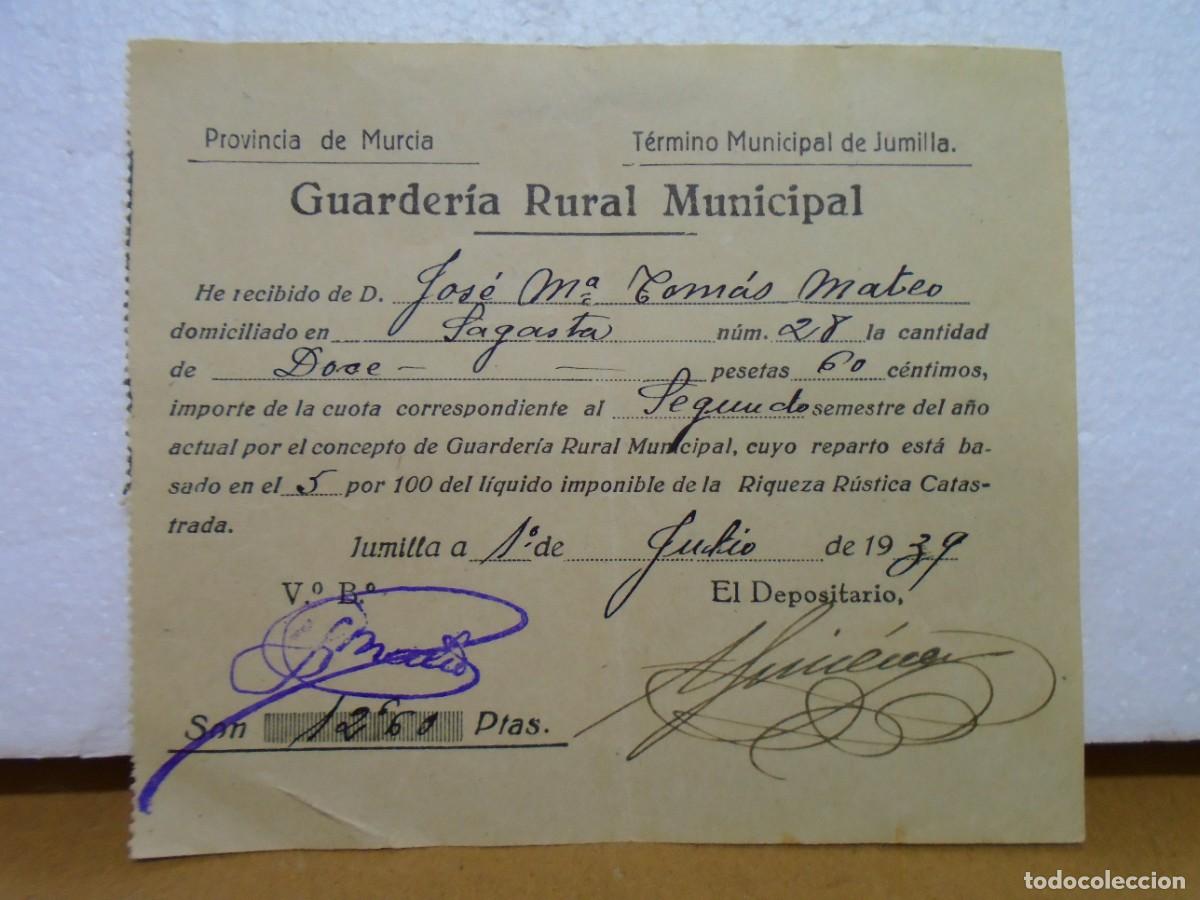 Provincia de Murcia
Término Municipal de Jumilla.
Guardería Rural Municipal
He recibido de D. José Mª Tomás Mateo
domiciliado en Sagasta núm. 28 la cantidad
de Doce — — pesetas 60 céntimos,
importe de la cuota correspondiente al Segundo semestre del año
actual por el concepto de Guardería Rural Municipal, cuyo reparto está ba-
sado en el 5 por 100 del líquido imponible de la Riqueza Rústica Catas-
trada.
Jumilla a 1º de Julio de 1939
V.º B.º
El Depositario,
Son 12'60 Ptas.
todocoleccion